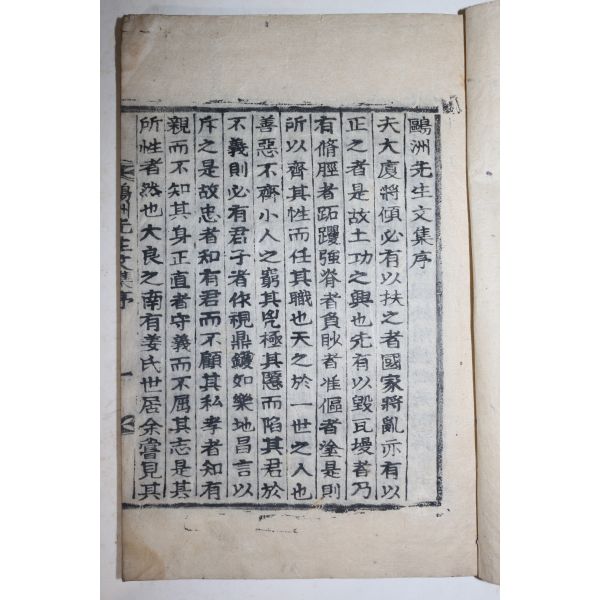 鷗洲先生文集序
夫大廈將傾必有以扶之者國家將亂亦有以
正之者是故土功之興也先有以毀瓦墁者乃
有脩脛者跖钁強脊者負眇者准傴者塗是則
所以齊其性而任其職也天之於一世之人也
善惡不齊小人之窮其兇極其隱而陷其君於
不義則必有君子者你視鼎鑊如樂地昌言以
斥之是故忠者知有君而不顧其私孝者知有
親而不知其身正直者守義而不屈其志是其
所性者然也大良之南有姜氏世居余嘗見其
鷗洲先生文集序 一